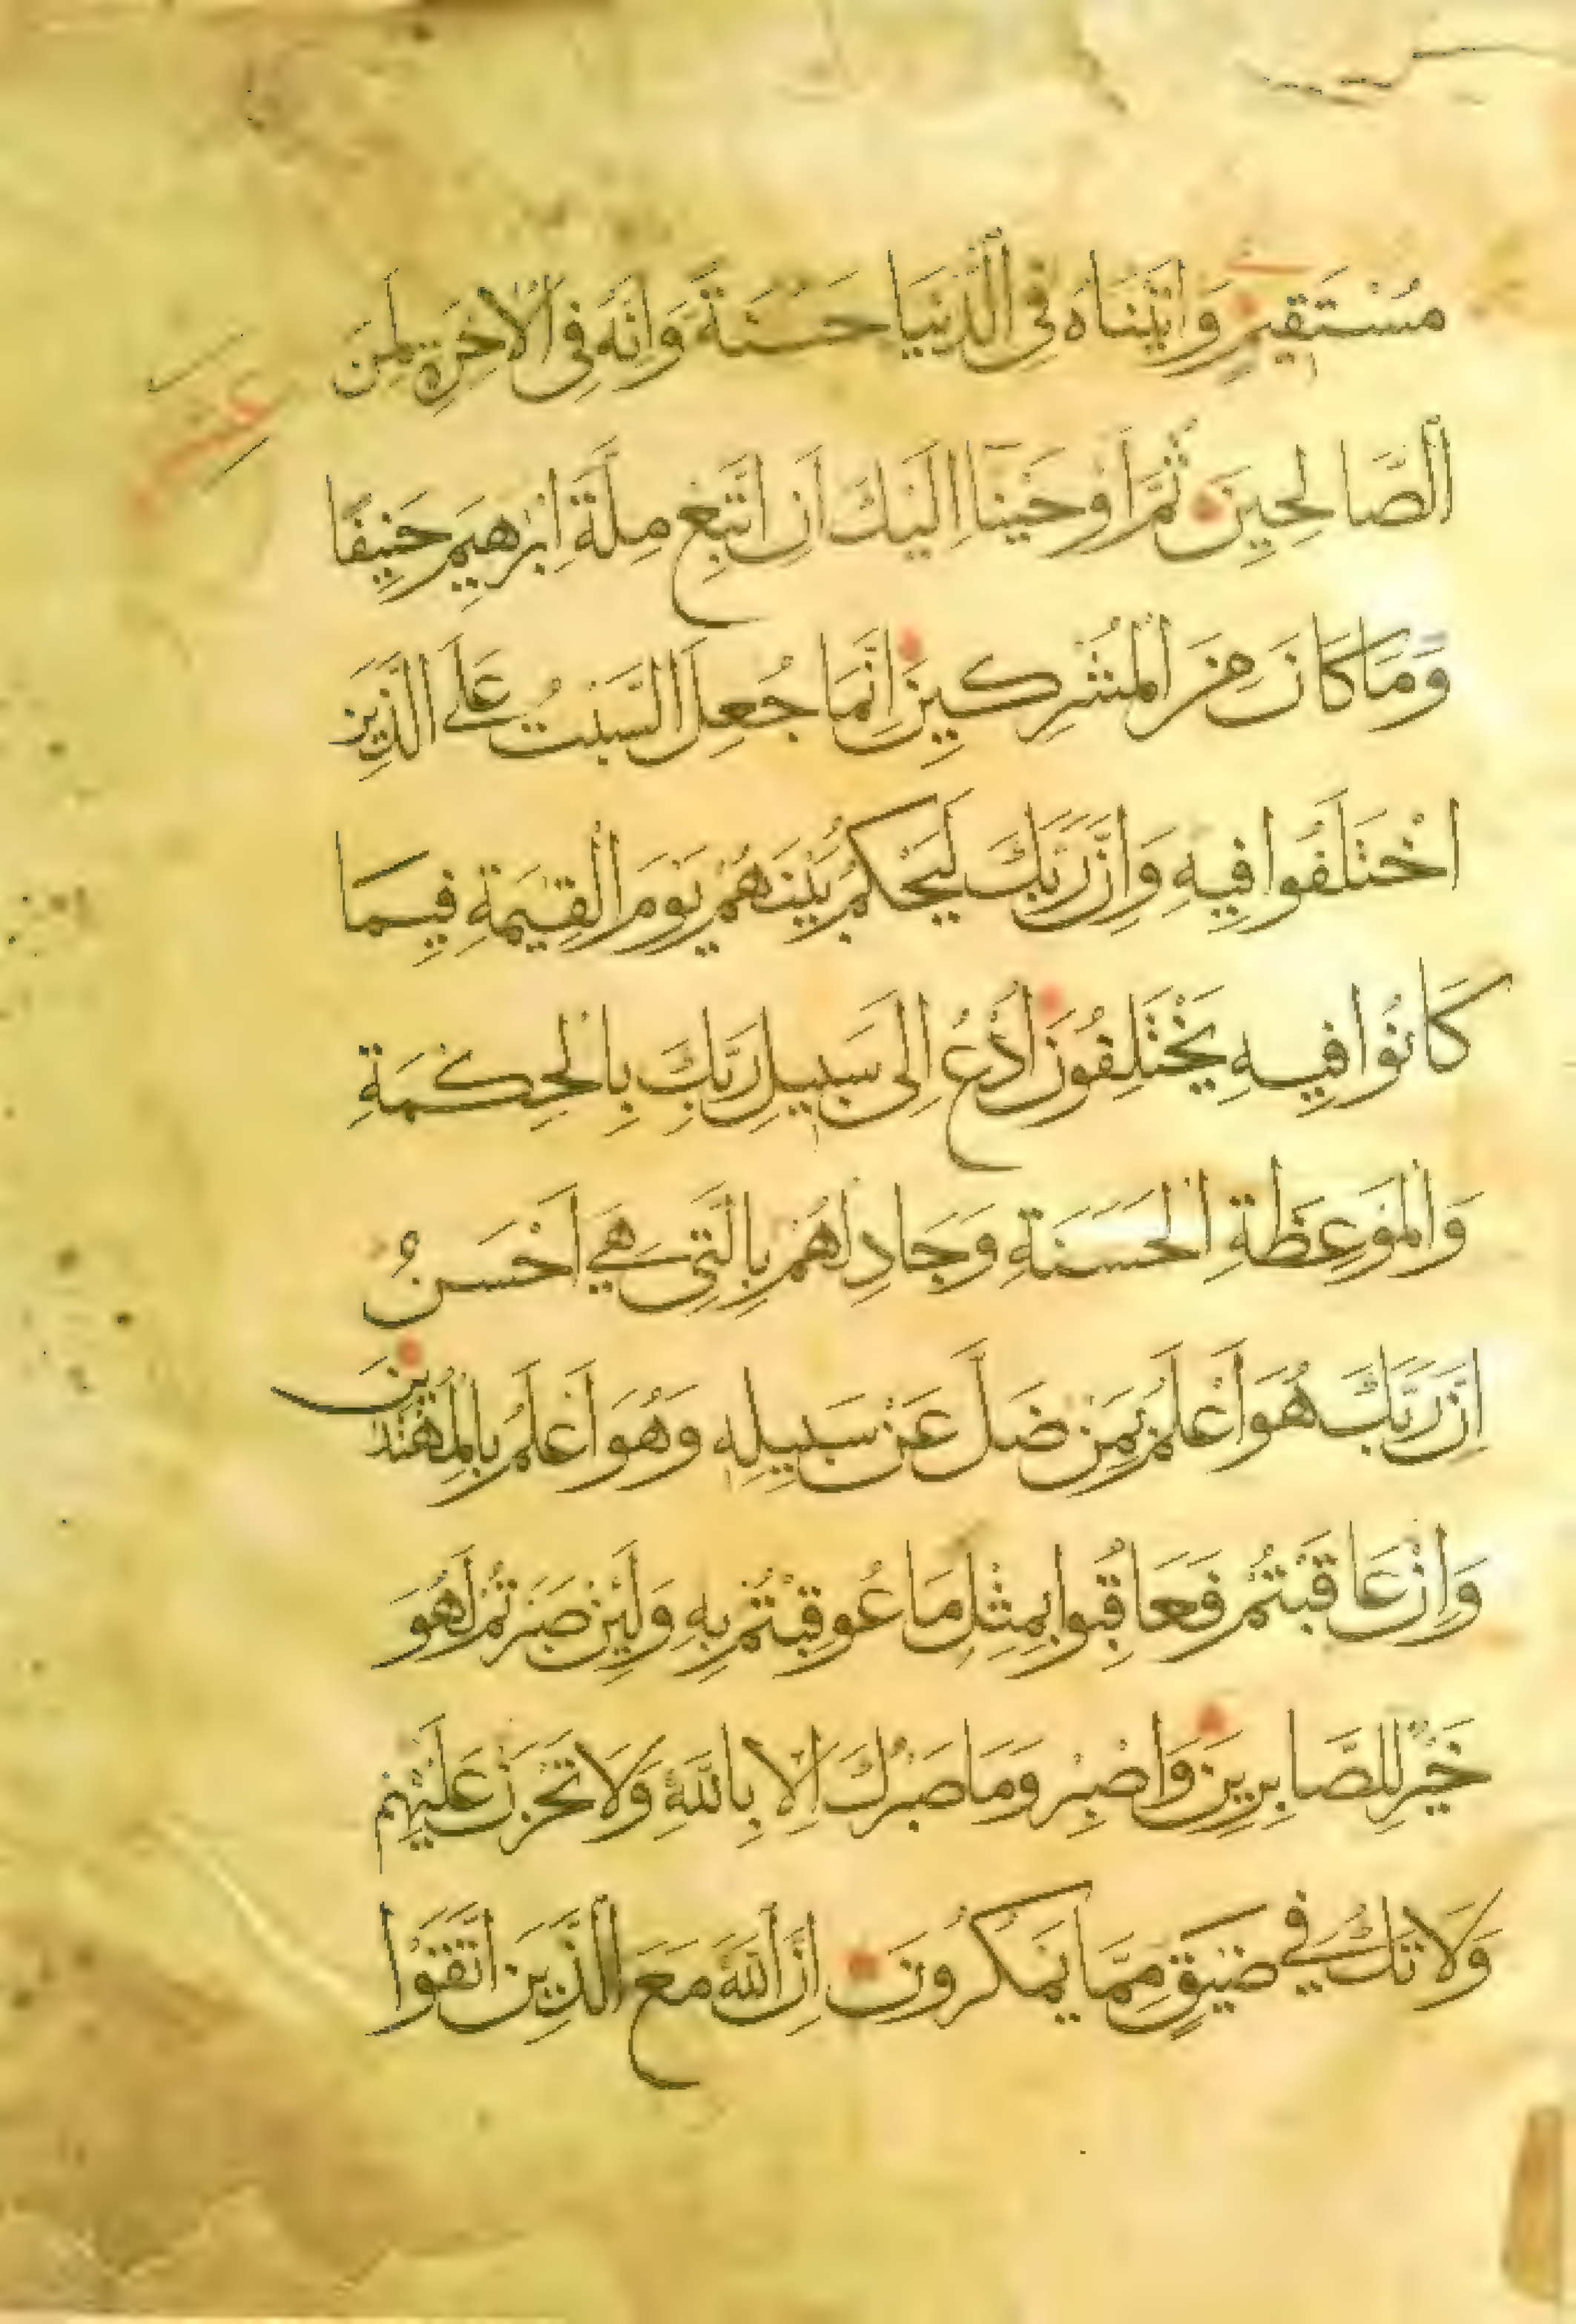 مُسْتَقِيمٍ وَاتَيْنَاهُ فِي الدُّنْيَا حَسَنَةً وَإِنَّهُ فِي الْاخِرَةِ لَمِنَ
الصَّالِحِينَ ثُمَّ أَوْحَيْنَا إِلَيْكَ أَنِ اتَّبِعْ مِلَّةَ إِبْرٰهِيمَ حَنِيفًا
وَمَا كَانَ مِنَ الْمُشْرِكِينَ إِنَّمَا جُعِلَ السَّبْتُ عَلَى الَّذِينَ
اخْتَلَفُوا فِيهِ وَإِنَّ رَبَّكَ لَيَحْكُمُ بَيْنَهُمْ يَوْمَ الْقِيٰمَةِ فِيمَا
كَانُوا فِيهِ يَخْتَلِفُونَ ادْعُ إِلَى سَبِيلِ رَبِّكَ بِالْحِكْمَةِ
وَالْمَوْعِظَةِ الْحَسَنَةِ وَجَادِلْهُمْ بِالَّتِي هِيَ أَحْسَنُ
إِنَّ رَبَّكَ هُوَ أَعْلَمُ بِمَنْ ضَلَّ عَنْ سَبِيلِهِ وَهُوَ أَعْلَمُ بِالْمُهْتَدِينَ
وَإِنْ عَاقَبْتُمْ فَعَاقِبُوا بِمِثْلِ مَا عُوقِبْتُمْ بِهِ وَلَئِنْ صَبَرْتُمْ لَهُوَ
خَيْرٌ لِلصَّابِرِينَ وَاصْبِرْ وَمَا صَبْرُكَ إِلَّا بِاللَّهِ وَلَا تَحْزَنْ عَلَيْهِمْ
وَلَا تَكُ فِي ضَيْقٍ مِمَّا يَمْكُرُونَ إِنَّ اللَّهَ مَعَ الَّذِينَ اتَّقَوْا